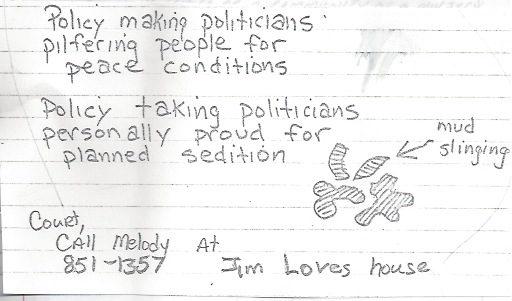 Policy making politicians
pilfering people for
peace conditions
Policy taking politicians
personally proud for
planned sedition
mud
slinging
Couet,
CAll Melody At
851-1357 Jim Loves house